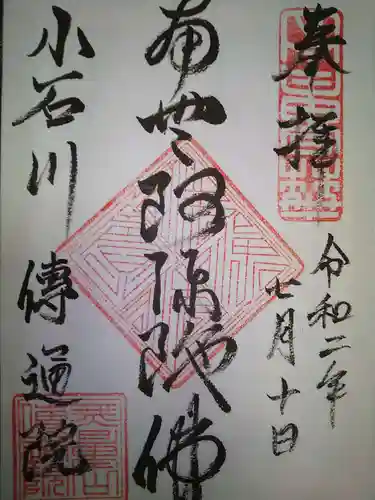 奉拝
令和二年
七月十日
南無阿弥陀佛
小石川
傳通院